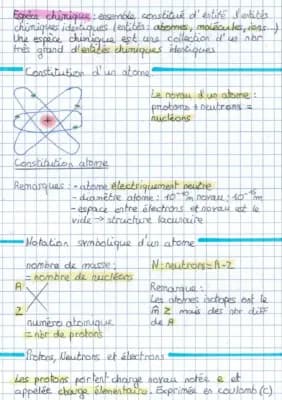 Espèce chimique : ensemble constitué d'entité d'entités
chimiques identiques (entités : atomes, molécules, ions...)
Une espèce chimique est une collection d'un nbr
très grand d'entités chimiques identiques
Constitution d'un atome
Le noyau d'un atome :
protons + neutrons =
nucléons
Constitution atome
Remarques : - atome électriquement neutre
- diamètre atome : 10⁻¹⁰ m noyau : 10⁻¹⁵ m
- espace entre électrons et noyau est le
vide → structure lacunaire
Notation symbolique d'un atome
nombre de masse :
= nombre de nucléons
N : neutrons = A - Z
A
X
Z
Remarque :
Les atomes isotopes ont le
m̂ Z mais des nbr diff
de A
numéro atomique
= nbr de protons
Protons, Neutrons et électrons
Les protons portent charge noyau notée e et
appelée charge élémentaire. Exprimée en coulomb (C)